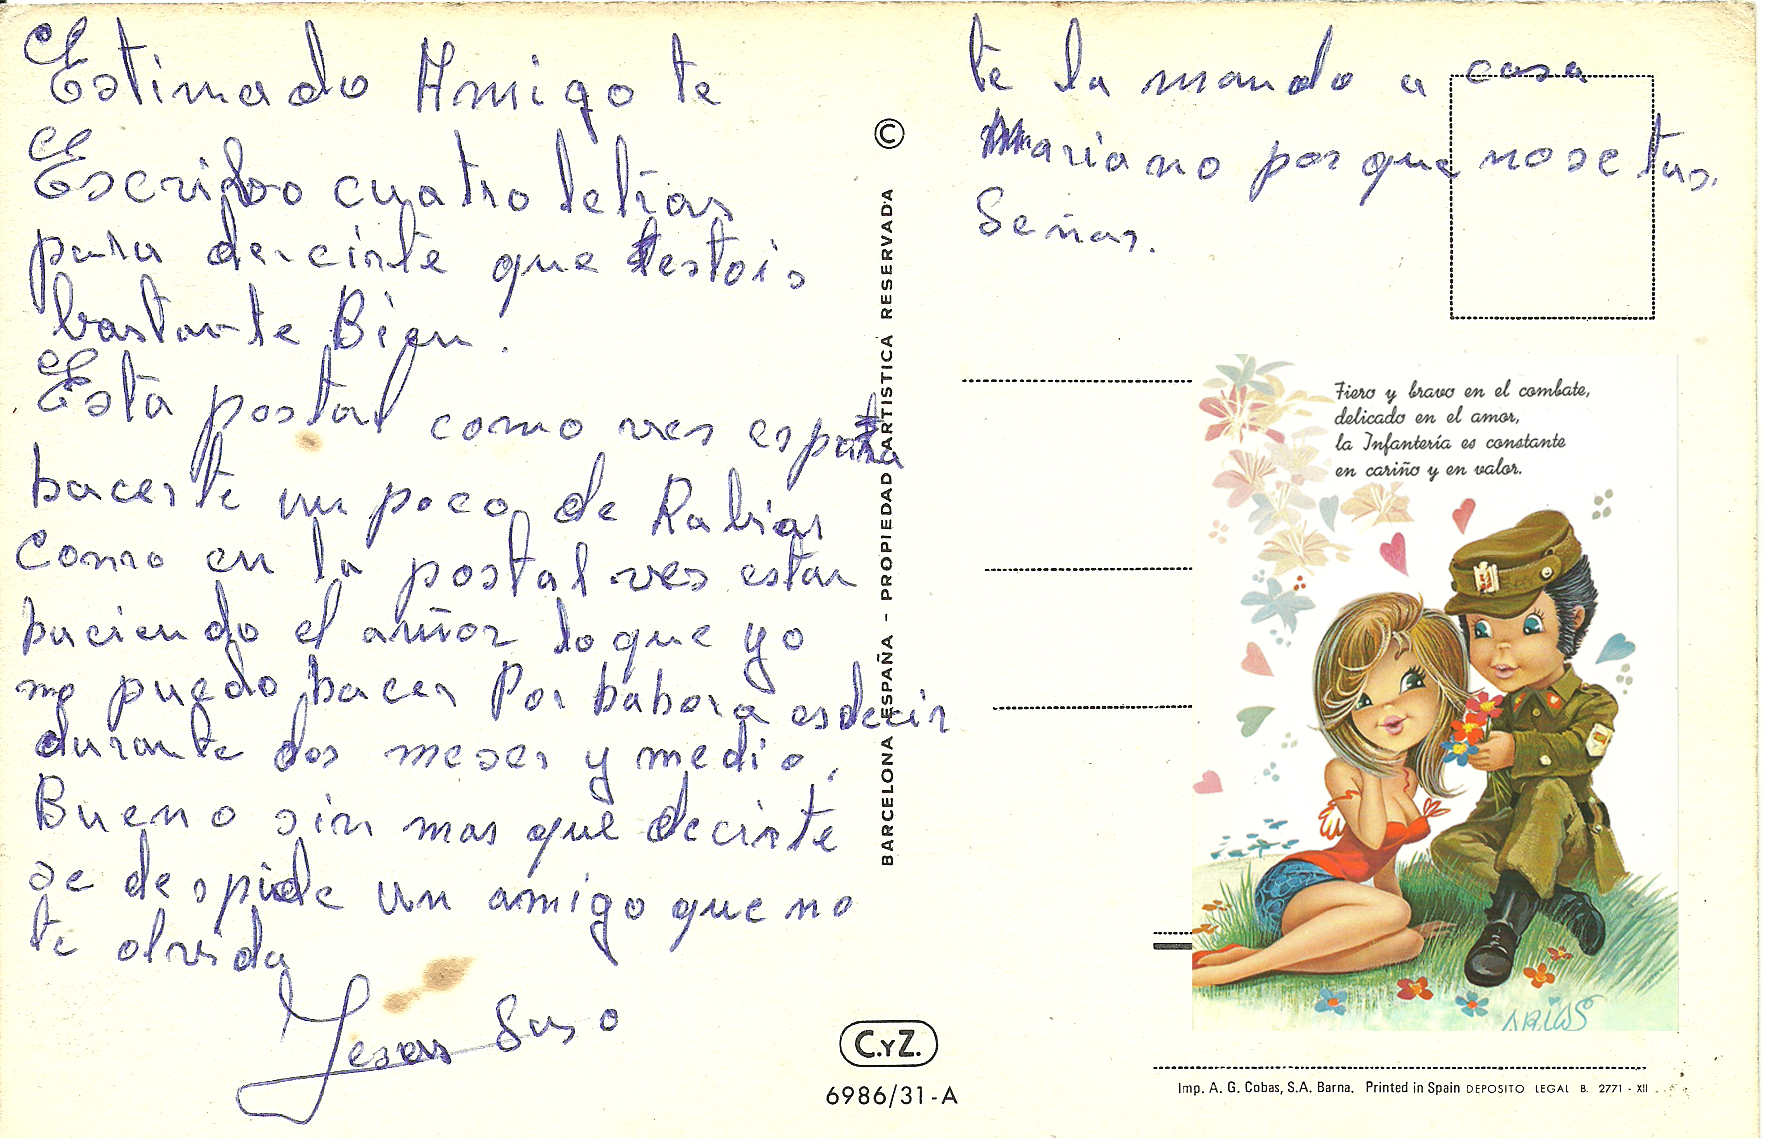 Estimado Amigo te
Escribo cuatro letras
para decirte que estois
bastante Bien.
Esta postal como ves es para
hacerte un poco de Rabiar
Como en la postal ves estan
haciendo el amor lo que yo
no puedo hacer Por hahora es decir
durante dos meses y medio.
Bueno sin mas que decirte
se despide un amigo que no
te olvida
Jesus Suso
te la mando a casa
Mariano por que no se tus
Señas.
©
BARCELONA ESPAÑA - PROPIEDAD ARTISTICA RESERVADA
Fiero y bravo en el combate,
delicado en el amor,
la Infantería es constante
en cariño y en valor.
ARIAS
C.YZ.
6986/31-A
Imp. A. G. Cobas, S.A. Barna. Printed in Spain DEPOSITO LEGAL B. 2771 - XII